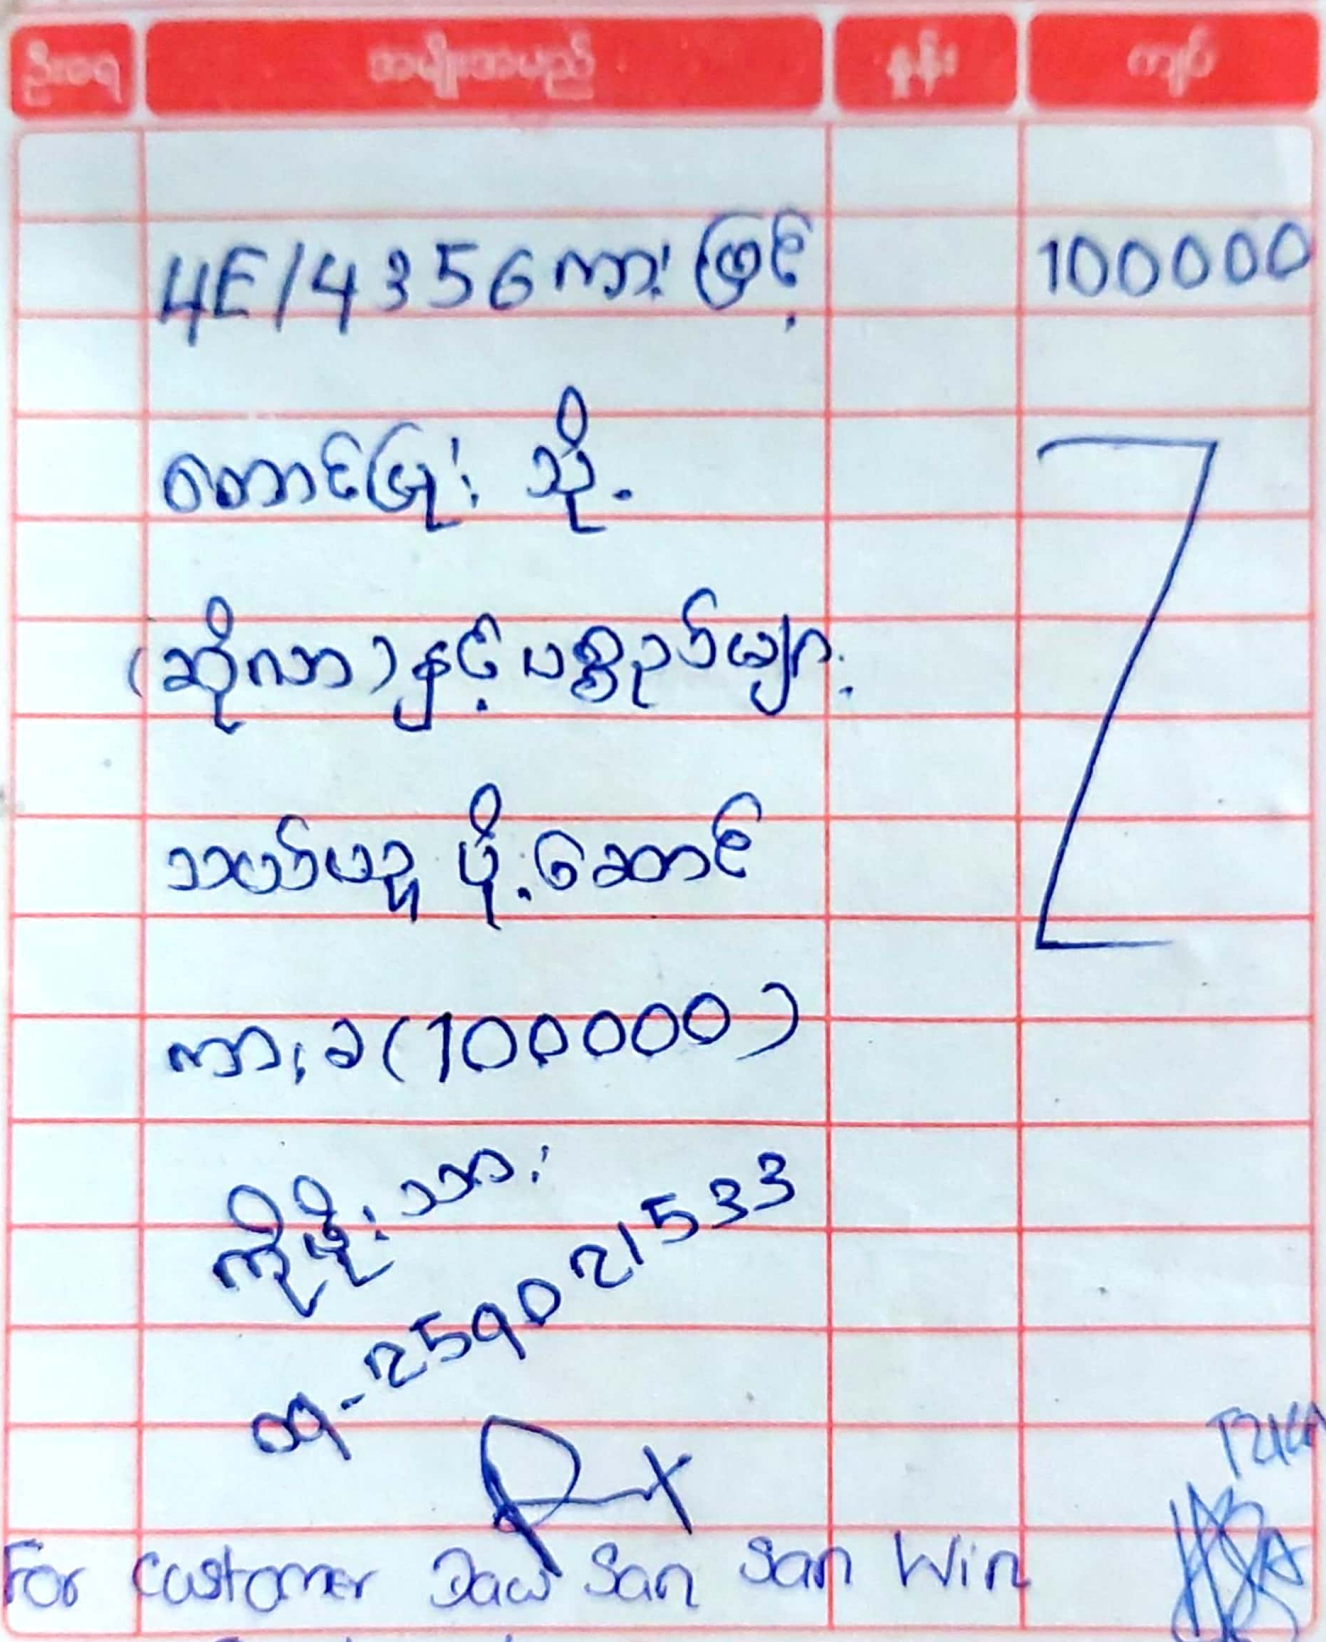 ဦးရေ အမျိုးအမည် နှုန်း ကျပ်
4E/4356ကား ဖြင့် 100000
တောင်ပြုံး သို့
(ဆိုလာ)နှင့်ပစ္စည်းများ
သယ်ယူ ပို့ဆောင်
ကားခ(100000)
ကိုဖိုးသား
09-259021533
For customer Daw San San Win